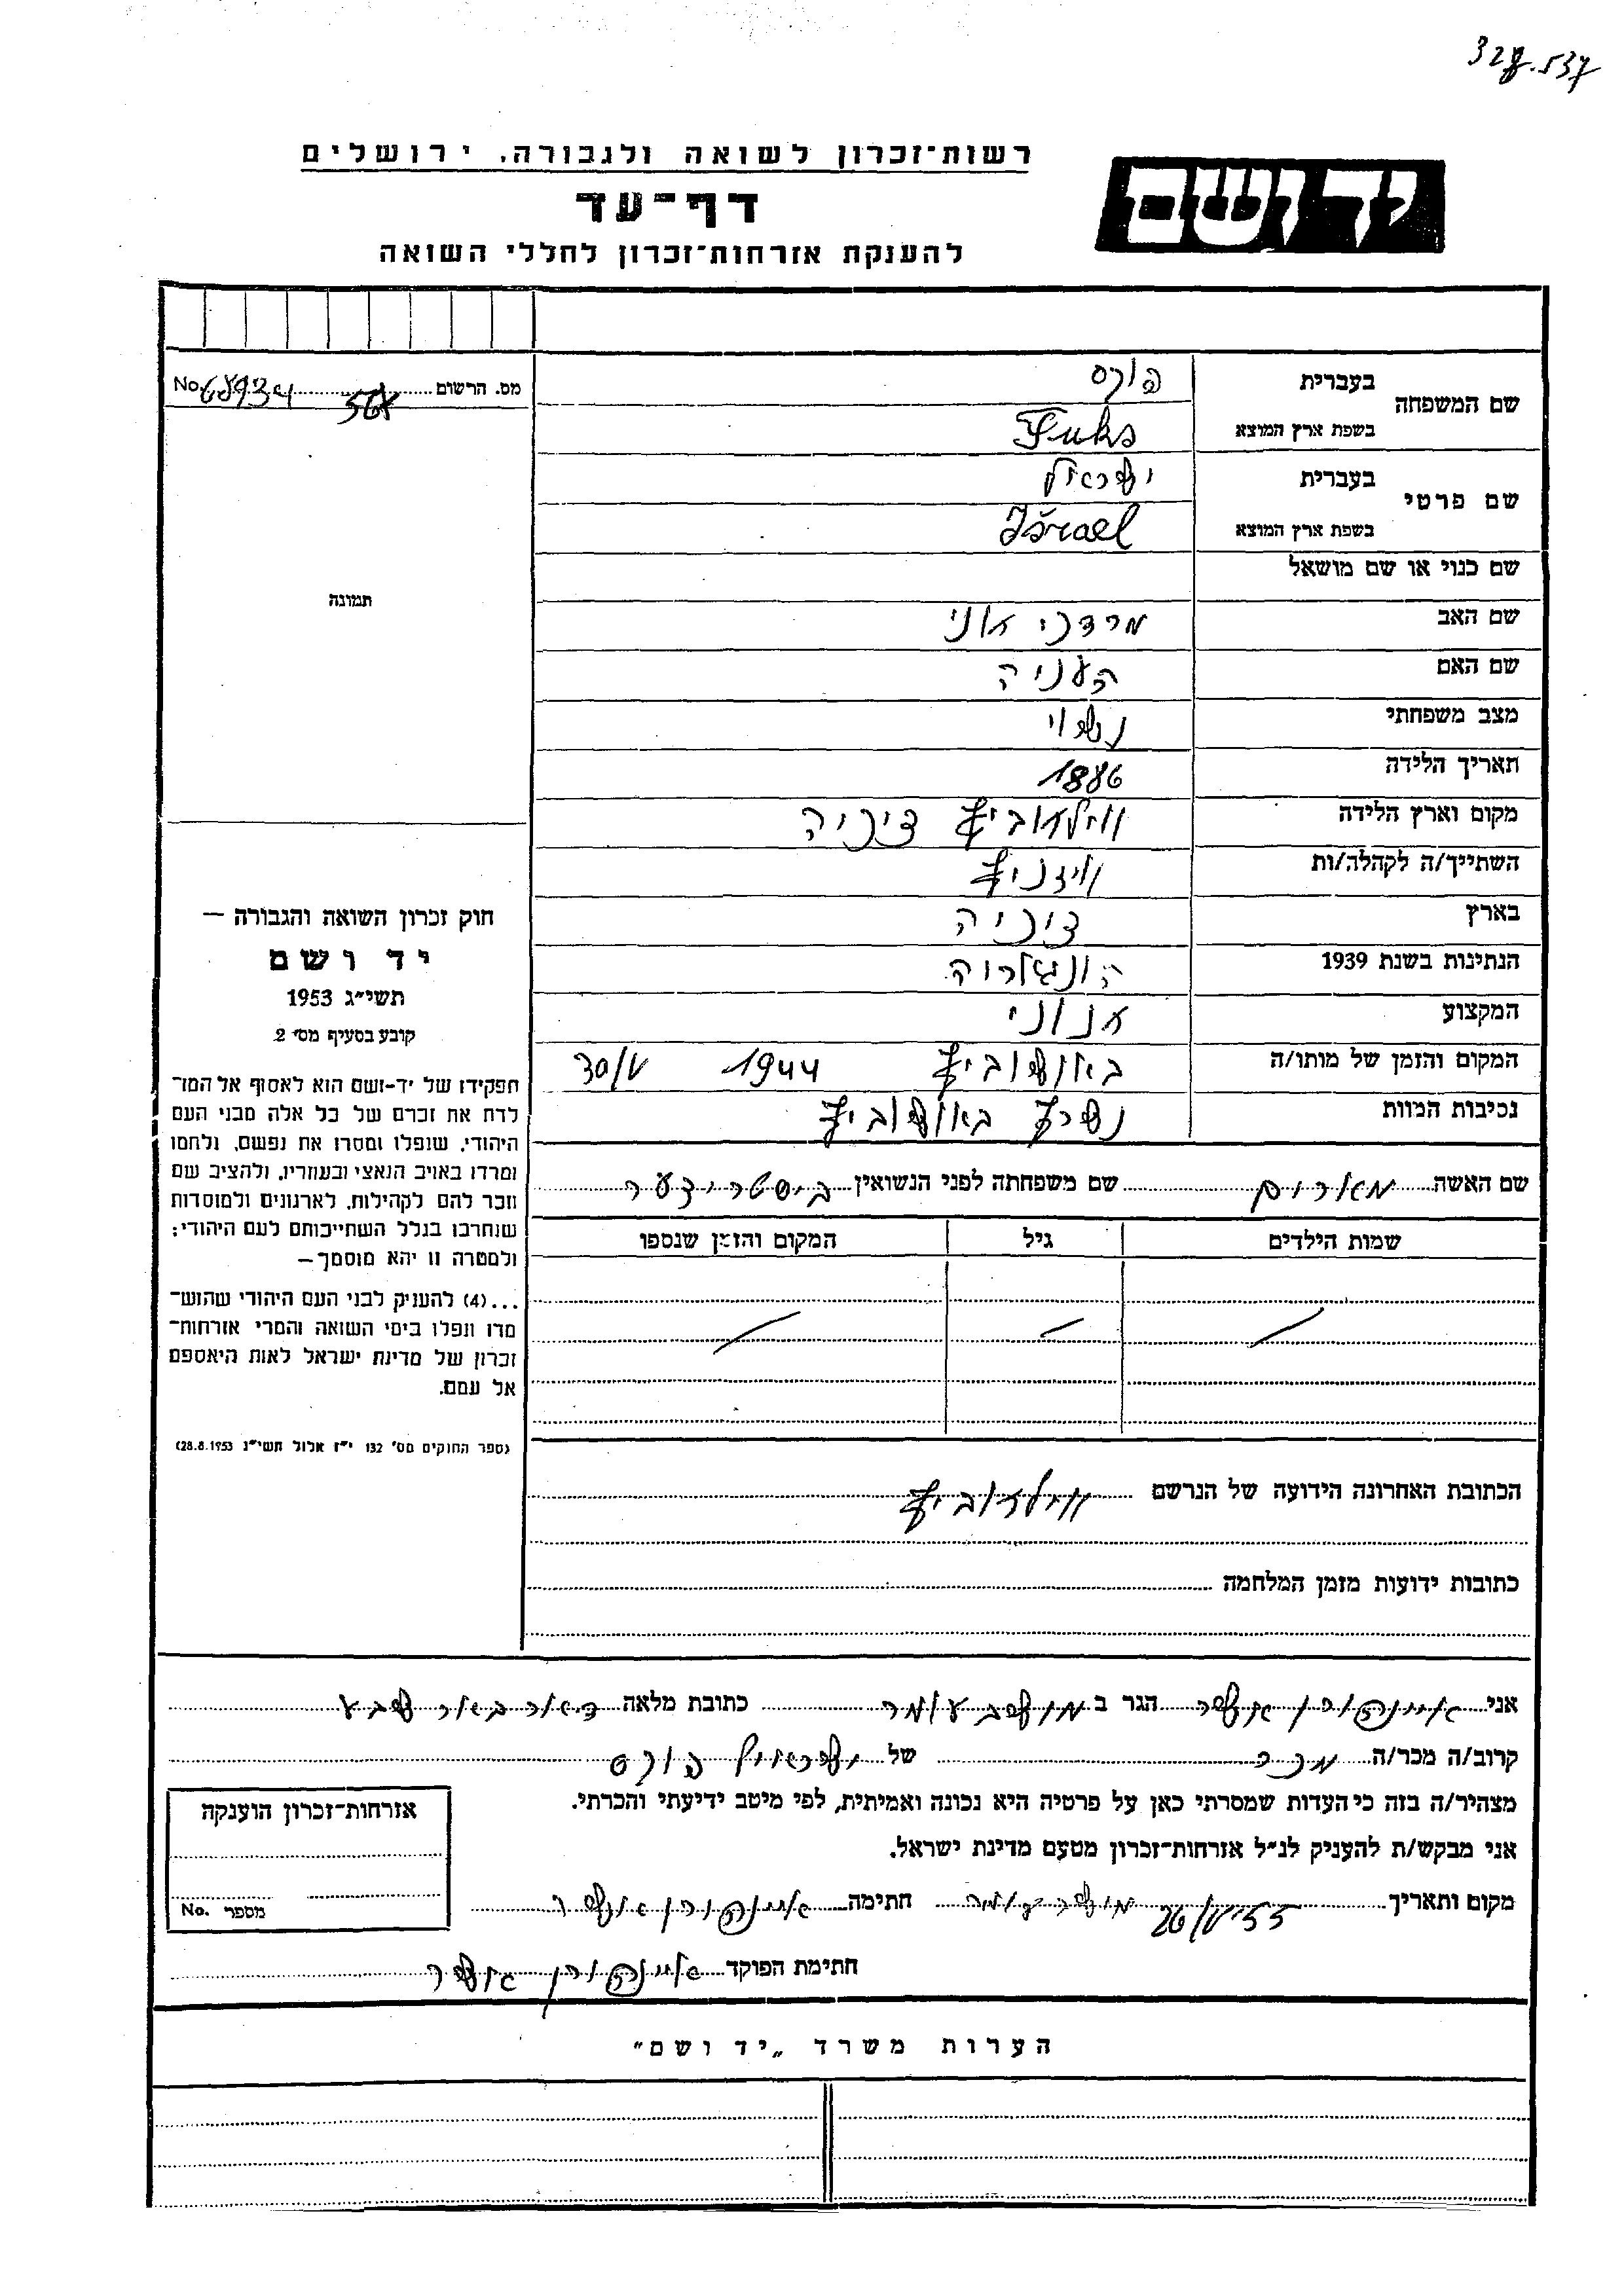 327.537
רשות־זכרון לשואה ולגבורה, ירושלים
יד ושם
דף־עד
להענקת אזרחות־זכרון לחללי השואה
שם המשפחה בעברית פוקס
בשפת ארץ המוצא Fuks
שם פרטי בעברית ישראל
בשפת ארץ המוצא Israel
שם כנוי או שם מושאל
שם האב מרדכי
שם האם
מצב משפחתי נשוי
תאריך הלידה 1886
מקום וארץ הלידה
השתייך/ה לקהלה/ות
בארץ
הנתינות בשנת 1939
המקצוע
המקום והזמן של מותו/ה באושוביץ 1944 30/V
נסיבות המוות נשרף באושוביץ
שם האשה שם משפחתה לפני הנשואין
שמות הילדים גיל המקום והזמן שנספו
הכתובת האחרונה הידועה של הנרשם
כתובות ידועות מזמן המלחמה
מס. הרשום No.
תמונה
חוק זכרון השואה והגבורה —
יד ושם
תשי״ג 1953
קובע בסעיף מס׳ 2
תפקידו של יד-ושם הוא לאסוף אל המו־
לדת את זכרם של כל אלה מבני העם
היהודי, שנפלו ומסרו את נפשם, נלחמו
ומרדו באויב הנאצי ובעוזריו, ולהציב שם
וזכר להם לקהילות, לארגונים ולמוסדות
שנחרבו בגלל השתייכותם לעם היהודי;
ולמטרה זו יהא מוסמך —
...(4) להעניק לבני העם היהודי שהוש־
מדו ונפלו בימי השואה והמרי אזרחות־
זכרון של מדינת ישראל לאות היאספם
אל עמם.
(ספר החוקים מס׳ 132 י״ז אלול תשי״ג 28.8.1953)
אני הגר ב מושב עומר כתובת מלאה דאר באר שבע
קרוב/ה מכר/ה מכר של ישראל פוקס
מצהיר/ה בזה כי העדות שמסרתי כאן על פרטיה היא נכונה ואמיתית, לפי מיטב ידיעתי והכרתי.
אני מבקש/ת להעניק לנ״ל אזרחות־זכרון מטעם מדינת ישראל.
מקום ותאריך מושב עומר חתימה
חתימת הפוקד
אזרחות־זכרון הוענקה
מספר No.
הערות משרד „יד ושם״